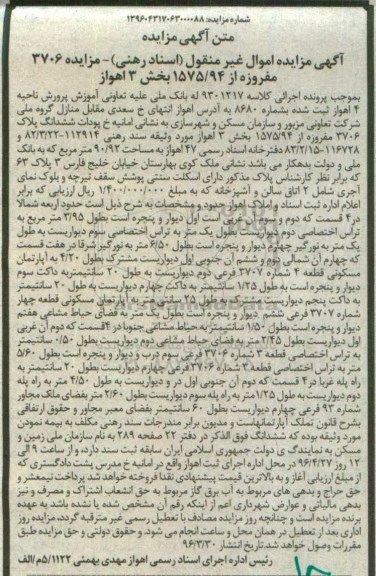 شماره مزایده: ۱۳۹۶۰۴۳۱۷۰۶۳۰۰۰۰۸۸
متن آگهی مزایده
آگهی مزایده اموال غیر منقول (اسناد رهنی) - مزایده ۳۷۰۶
مفروزه از ۱۵۷۵/۹۴ بخش ۳ اهواز
بموجب پرونده اجرائی کلاسه ۹۳۰۱۲۱۷ له بانک ملی علیه تعاونی آموزش پرورش ناحیه
۴ اهواز ثبت شده بشماره ۸۶۸۰ به آدرس اهواز انتهای خ سعدی مقابل منازل گروه ملی
شرکت تعاونی مزبور و سازمان مسکن و شهرسازی به نشانی امانیه خ پودات ششدانگ پلاک
۳۷۰۶ مفروزه از ۱۵۷۵/۹۴ بخش ۳ اهواز مورد وثیقه سند رهنی ۱۱۲۹۱۴-۸۲/۳/۲۲ و
۱۱۶۷۲۸-۸۳/۲/۱۵ دفترخانه اسناد رسمی ۴۷ اهواز به مساحت ۹۰/۹۲ متر مربع که به بانک
ملی و دولت بدهکار می باشد نشانی ملک کوی بهارستان خیابان خلیج فارس ۳ پلاک ۶۳
که برابر نظر کارشناس پلاک مذکور دارای اسکلت سنتی پوشش سقف تیرچه و بلوک نمای
آجری شامل ۲ اتاق سالن و آشپزخانه که به مبلغ ۱/۴۰۰/۰۰۰/۰۰۰ ریال ارزیابی که برابر
اعلام اداره ثبت اسناد و املاک اهواز حدود و مشخصات به شرح ذیل است حدود اربعه شمالا
در۴ قسمت که دوم و سوم آن غربی است اول دیوار و پنجره است بطول ۳/۹۵ متر مربع به
تراس اختصاصی دوم دیواریست بطول یک متر به تراس اختصاصی سوم دیواریست به طول
یک متر به نورگیر چهارم دیوار و پنجره است بطول ۶/۵۰ متر به نورگیر شرقا در هفت قسمت
که چهارم آن شمالی دوم و ششم آن جنوبی اول دیواریست مشترک بطول ۴/۲۰ به آپارتمان
مسکونی قطعه ۴ شماره ۳۷۰۷ فرعی دوم دیواریست به طول ۲۰ سانتیمتر به داکت سوم
دیوار و پنجره است به طول ۱/۲۵ سانتیمتر به داکت چهارم دیواریست به طول ۲۰ سانتیمتر
به داکت پنجم دیواریست مشترک به طول ۲۵ سانتیمتر به آپارتمان مسکونی قطعه چهار
شماره ۳۷۰۷ فرعی ششم دیوار و پنجره است بطول یک متر به فضای حیاط مشاعی هفتم
دیوار و پنجره است بطول ۱/۵۰ سانتیمتر به حیاط مشاعی جنوبا در ۴قسمت که دوم آن غربی
اول دیواریست بطول ۲/۴۵ متر به فضای حیاط مشاعی دوم دیواریست بطول ۰/۵۰ سانتیمتر
به تراس اختصاصی قطعه ۳ شماره ۳۷۰۶ فرعی سوم درب و دیوار و پنجره است بطول ۵/۶۰
متر به تراس اختصاصی قطعه ۳ شماره ۳۷۰۶ فرعی چهارم دیواریست بطول ۲۰ سانتیمتر به
راه پله غربا در۴ قسمت که دوم آن جنوبی اول در و دیواریست به طول ۴/۵۰ متر به راه پله
دوم دیواریست به طول ۱/۲۵متر به راه پله سوم دیواریست بطول ۲/۶۰ متر بفضای ملک مجاور
شماره ۹۳ فرعی چهارم دیواریست بطول ۶۰ سانتیمتر بفضای معبر مجاور و حقوق ارتفاقی
بشرح قانون تملک آپارتمانهاست و مدیون برابر مندرجات سند رهنی مکلف به بیمه نمودن
مورد وثیقه بوده که ششدانگ فوق الذکر در دفتر ۲۲ صفحه ۲۸۹ به نام سازمان ملی زمین و
مسکن به نمایندگی دولت جمهوری اسلامی ایران سابقه ثبت سند دارد، و از ساعت ۹ الی
۱۲ روز ۹۶/۴/۲۷ در محل اداره اجرای ثبت اهواز واقع در امانیه خ مدرس پشت دادگستری که
از مبلغ ارزیابی آغاز و به بالاترین قیمت پیشنهادی نقدا فروخته خواهد شد پرداخت نیمعشر و
حق حراج و بدهی های مربوط به آب برق گاز مربوط به حق انشعاب اشتراک و مصرف و نیز
بدهی مالیاتی و عوارض شهرداری اعم از اینکه رقم آن مشخص شده یا نشده باشد به عهده
برنده مزایده است و چنانچه روز مزایده مصادف با تعطیل رسمی غیر مترقبه گردد، مزایده روز
اداری بعد از تعطیل در همان محل و ساعت انجام می شود. و حقوق دولتی و حق مزایده طبق
مقررات وصول خواهد شد. تاریخ انتشار ۹۶/۳/۳۰
رئیس اداره اجرای اسناد رسمی اهواز مهدی بهمنی ۵/۱۱۲۲م/الف